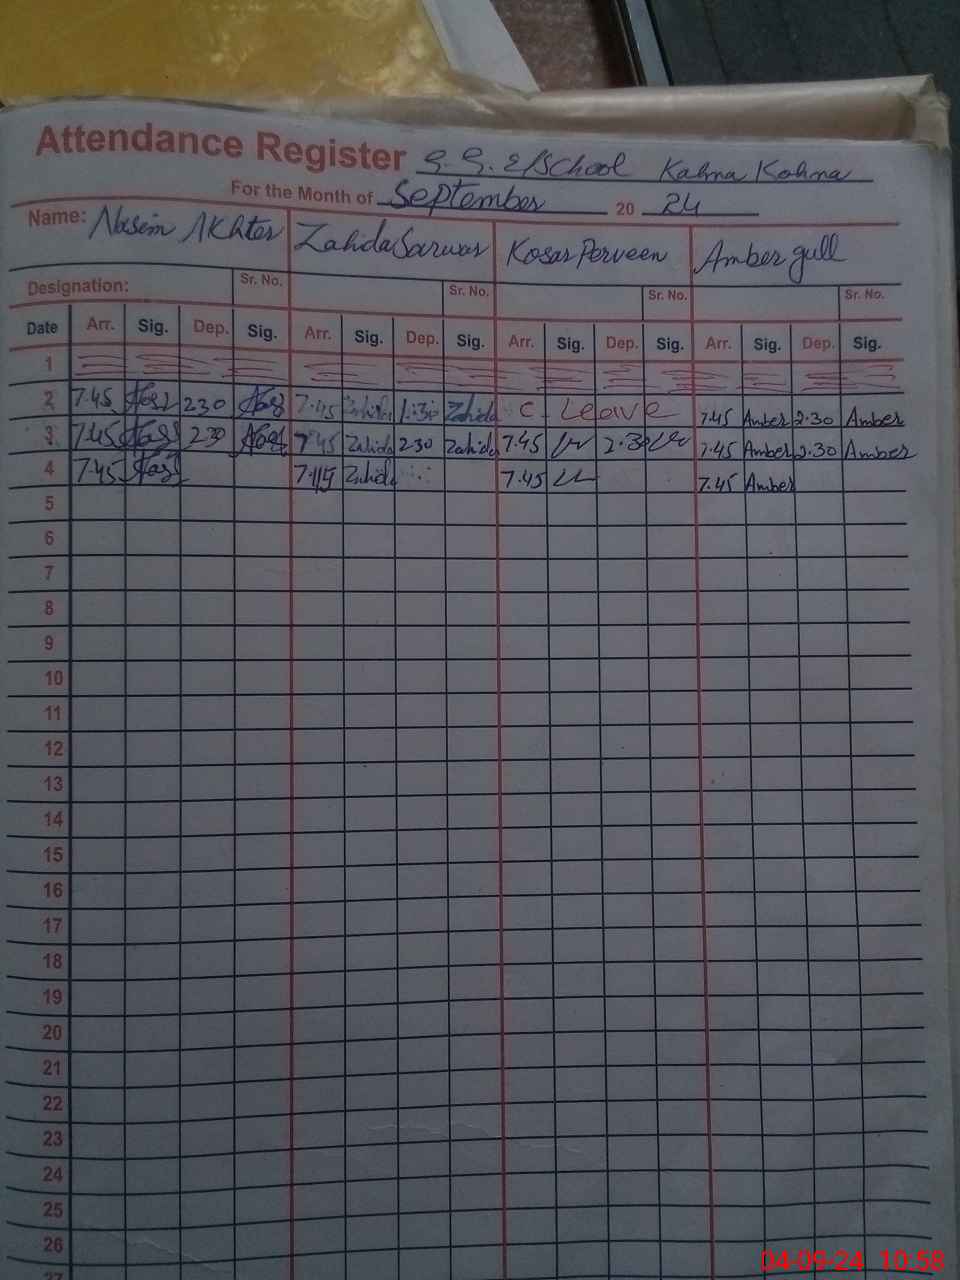 Attendance Register G. G. E/School Kahna Kohna
For the Month of September 20 24
Name: Nasim Akhter Zahida Sarwar Kosar Perveen Amber gull
Designation: Sr. No. Sr. No. Sr. No. Sr. No.
Date Arr. Sig. Dep. Sig. Arr. Sig. Dep. Sig. Arr. Sig. Dep. Sig. Arr. Sig. Dep. Sig.
1
2 7.45 230 7.45 Zahida 1:30 Zahida C. Leave 7.45 Amber 2.30 Amber
3 7.45 230 7.45 Zahida 2.30 Zahida 7.45 2.30 7.45 Amber 2.30 Amber
4 7.45 7.45 Zahida 7.45 7.45 Amber
5
6
7
8
9
10
11
12
13
14
15
16
17
18
19
20
21
22
23
24
25
26
27
04-09-24 10:58